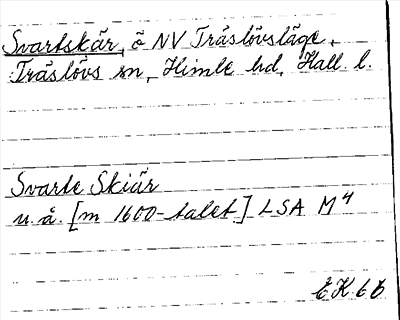 Svartskär, ö NV Träslövsläge,
Träslövs sn, Himle hd, Hall. l.
Svarte Skiär
u.å. [m 1600-talet] LSA M4
EK 66